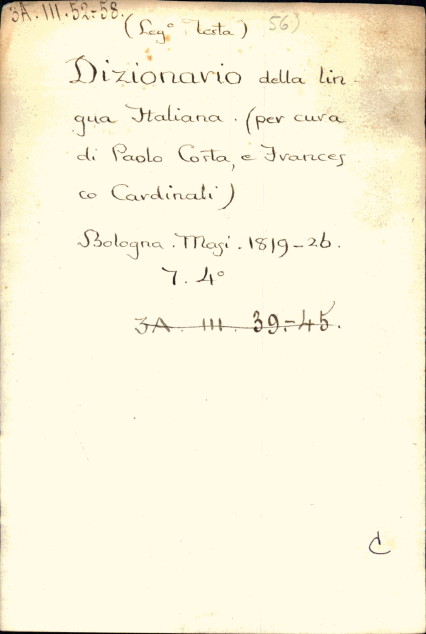 3A. III. 52-58.
(Leg° Testa) 56)
Dizionario della lin-
gua Italiana. (per cura
di Paolo Costa, e Frances
co Cardinali)
Bologna. Masi. 1819-26.
7. 4°
3A. III. 39-45.
C